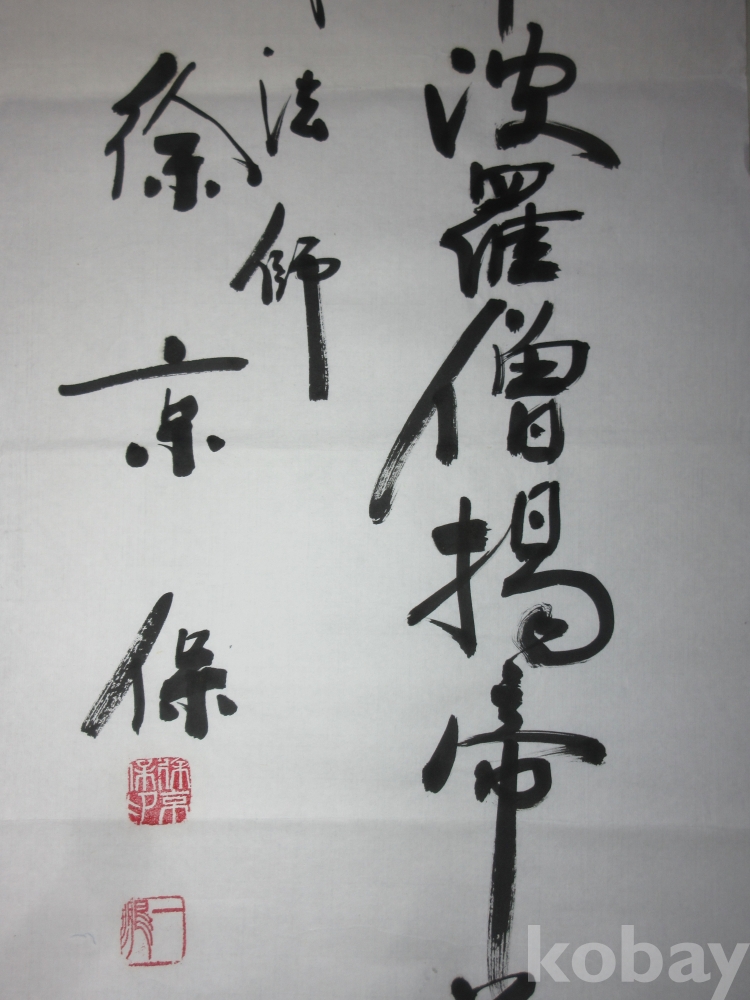 波羅僧揭帝
法師
徐京保
徐京保印
kobay